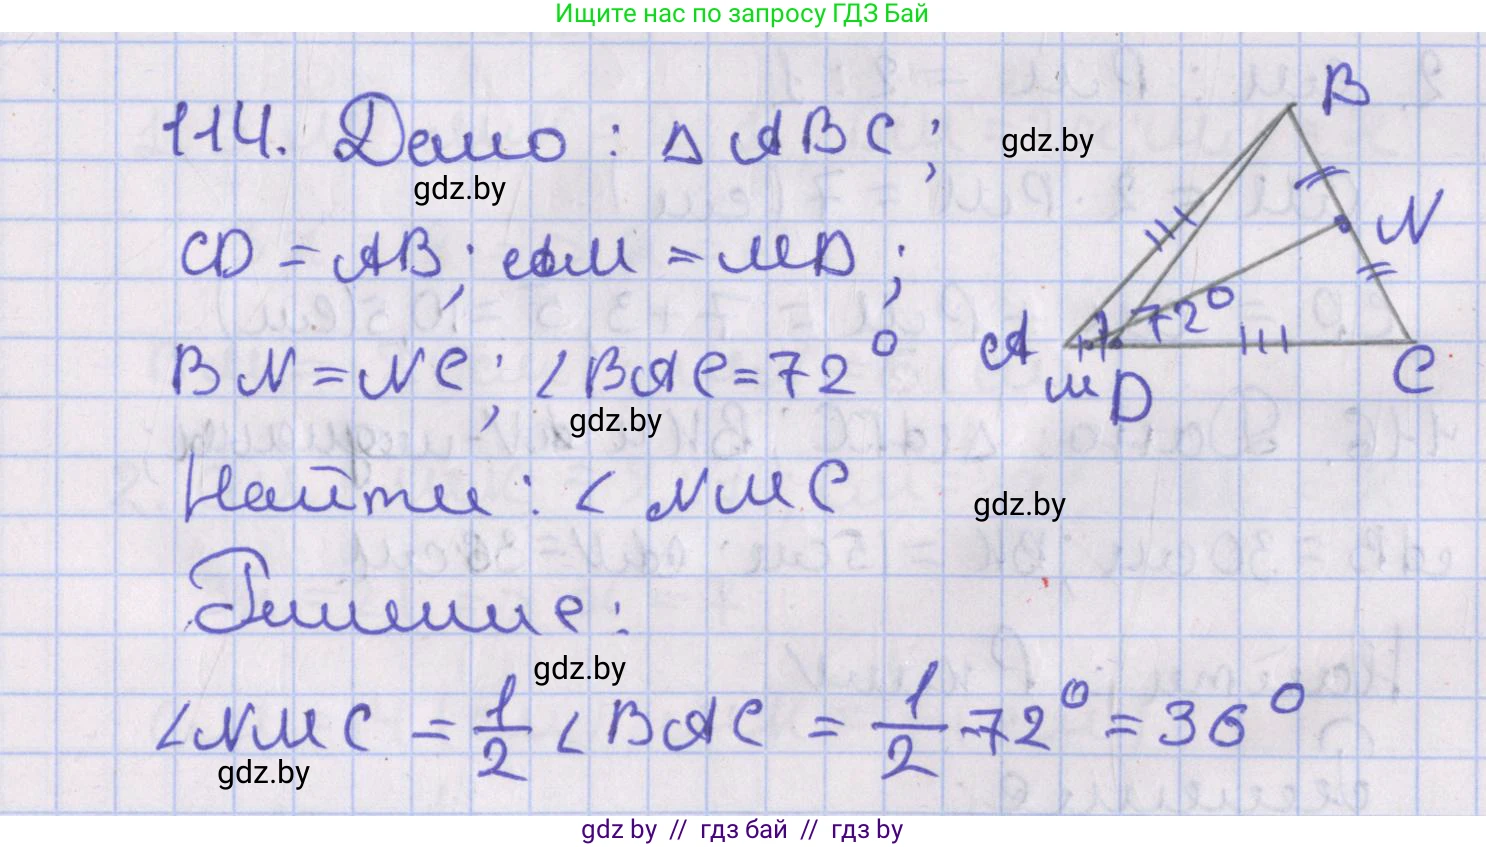 Ищите нас по запросу ГДЗ Бай
114. Дано : Δ ABC ;
gdz.by
gdz.by
CD = AB ; AM = MD ;
BN = NC ; ∠ BAC = 72°
gdz.by
Найти : ∠ NMC
gdz.by
Решение :
gdz.by
∠NMC = 1/2 ∠ BAC = 1/2 · 72° = 36°
gdz.by
B
N
72°
A
M
D
C
gdz by // гдз бай // гдз by